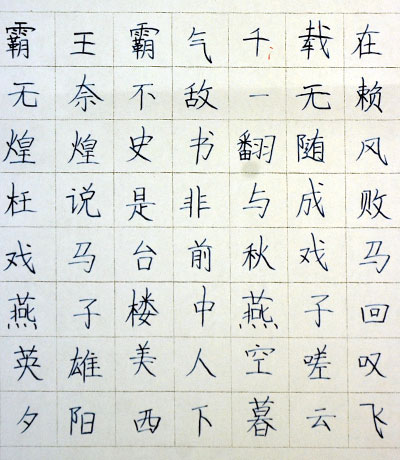 霸王霸气千载在
无奈不敌一无赖
煌煌史书翻随风
枉说是非与成败
戏马台前秋戏马
燕子楼中燕子回
英雄美人空嗟叹
夕阳西下暮云飞